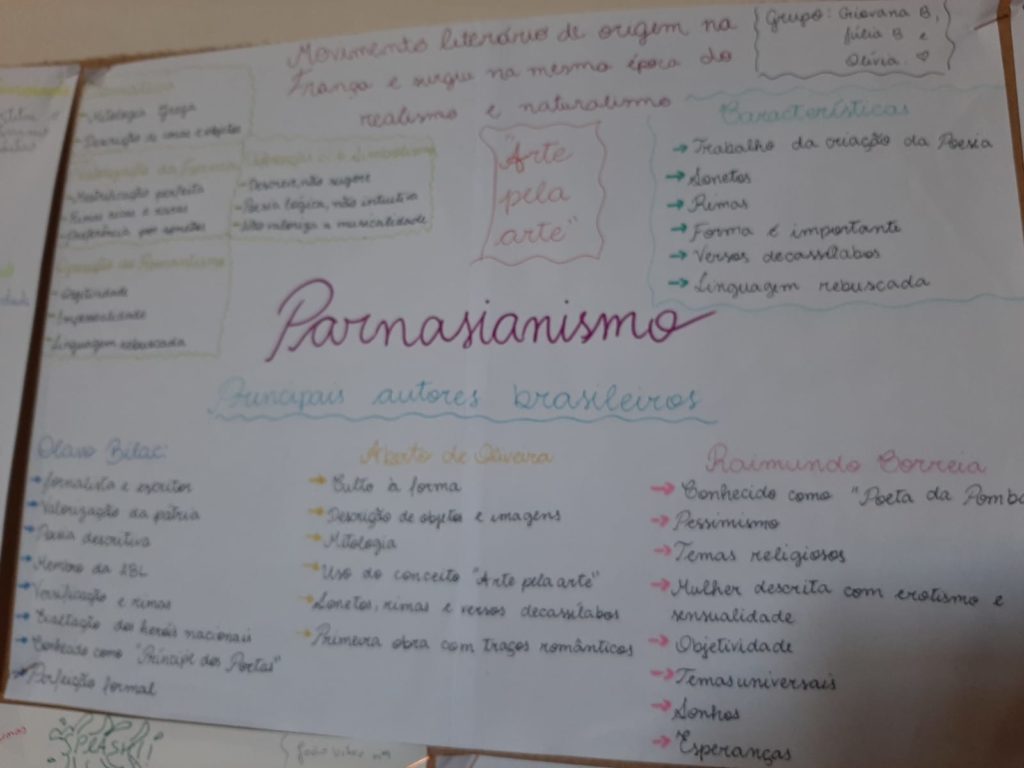 Movimento literário de origem na
França e surgiu na mesma época do
realismo e naturalismo
Grupo: Giovana B,
Júlia B e
Olívia. ♡
- Mitologia Grega
- Descrição de cenas e objetos
Valorização da Forma
- Metrificação perfeita
- Rimas ricas e raras
- Preferência por sonetos
Oposição ao Simbolismo
- Descreve, não sugere
- Poesia lógica, não intuitiva
- Não valoriza a musicalidade
Oposição ao Romantismo
- Objetividade
- Impessoalidade
- Linguagem rebuscada
"Arte
pela
arte"
Características
→ Trabalho da criação da Poesia
→ Sonetos
→ Rimas
→ Forma é importante
→ Versos decassílabos
→ Linguagem rebuscada
Parnasianismo
Principais autores brasileiros
Olavo Bilac:
→ Jornalista e escritor
→ Valorização da pátria
→ Poesia descritiva
→ Membro da ABL
→ Versificação e rimas
→ Exaltação dos heróis nacionais
→ Conhecido como "Príncipe dos Poetas"
→ Perfeição formal
Alberto de Oliveira
→ Culto à forma
→ Descrição de objeto e imagens
→ Mitologia
→ Uso do conceito "Arte pela arte"
→ Sonetos, rimas e versos decassílabos
→ Primeira obra com traços românticos
Raimundo Correia
→ Conhecido como "Poeta da Pomba
→ Pessimismo
→ Temas religiosos
→ Mulher descrita com erotismo e
sensualidade
→ Objetividade
→ Temas universais
→ Sonhos
→ Esperanças
SPLASH!